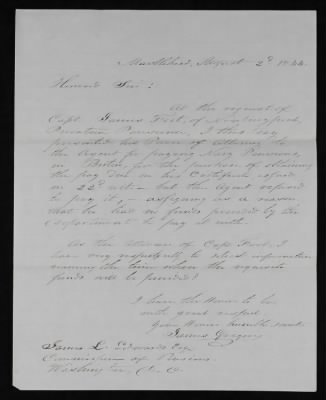 Marblehead, August 2d 1844.
Honored Sir:
At the request of
Capt. James Fort, of Newburyport,
Privateer Pensioner, I this day
presented his Power of Attorney to
the Agent for paying Navy Pensions,
in Boston, for the purpose of obtaining
the pay due on his Certificate
on 22d — but the Agent refused
to pay it, — assigning as a reason
that he had no funds provided by the
department to pay it with.
As the Attorney of Capt. Fort I
have very respectfully to information
naming the time when the requisite
funds will be provided?
I have the Honor to be
with great respect
Your Honors humble servt
James Gregory
James L. Edwards Esq
Commissioner of Pensions
Washington, D. C.